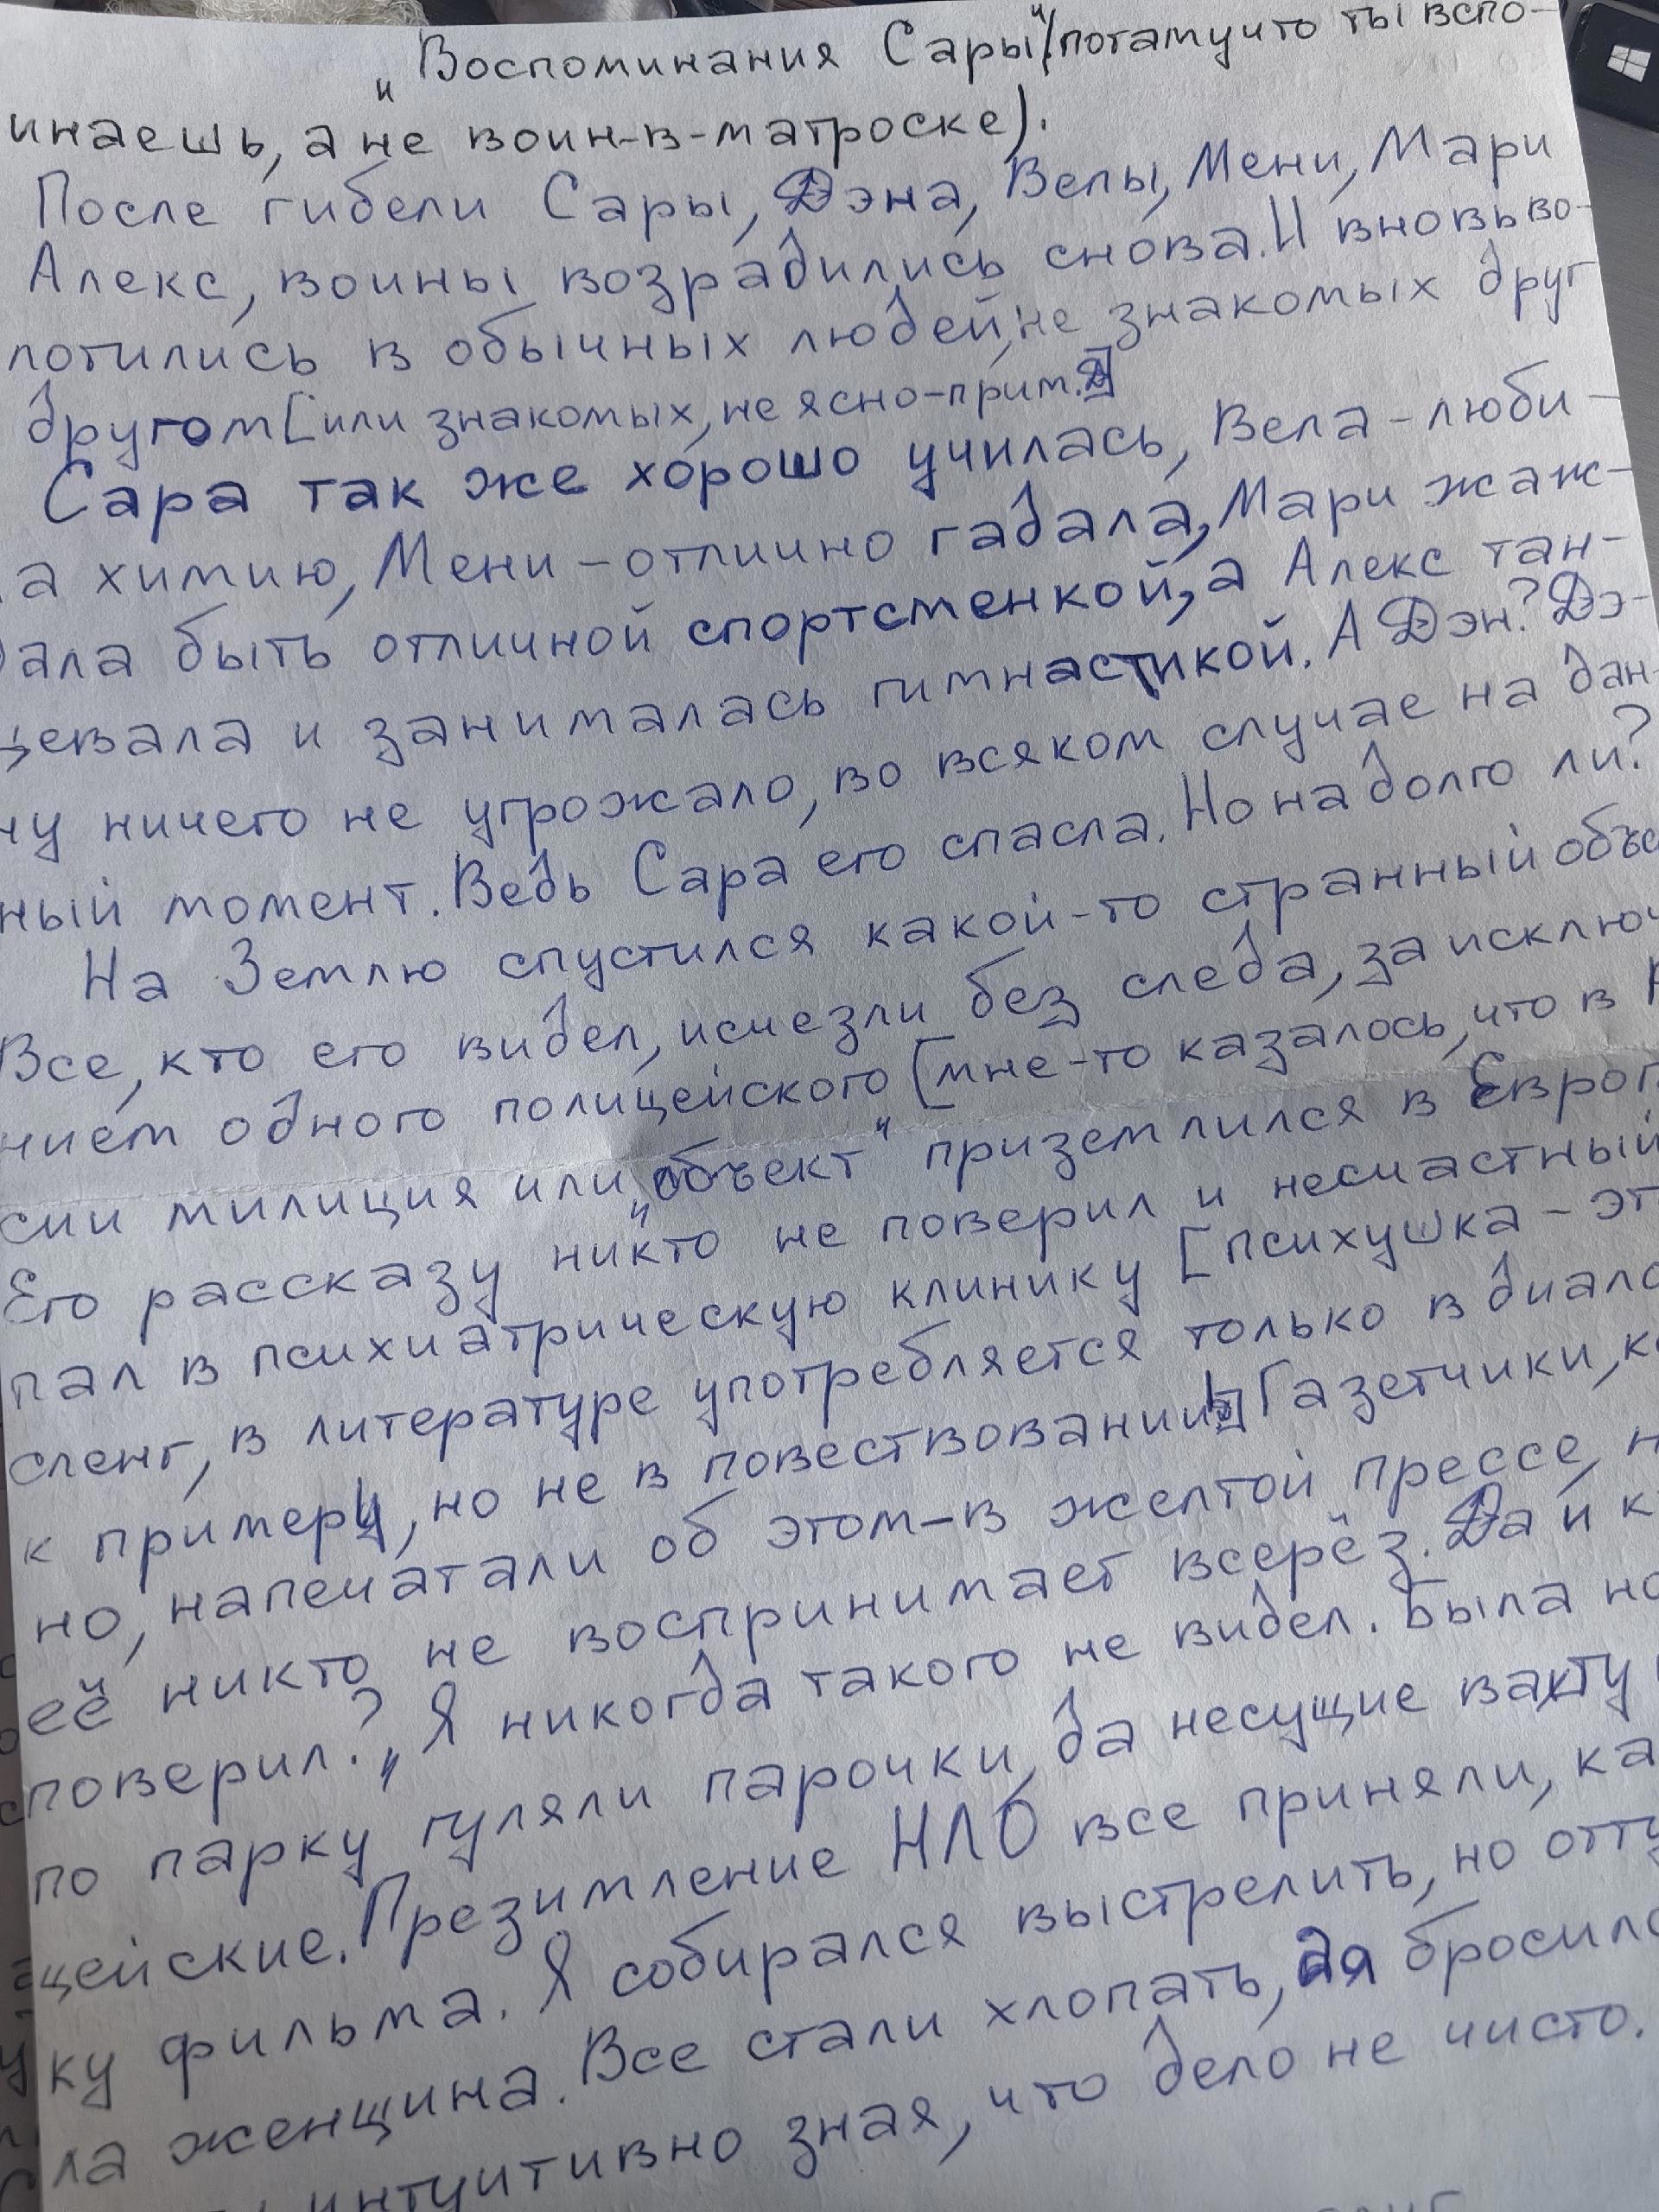 „Воспоминания Сары“(потамучто ты вспо-
инаешь, а не воин-в-матроске).
После гибели Сары, Дэна, Велы, Мени, Мари
Алекс, воины возрадились снова. И вновь во-
лотились в обычных людей, не знакомых друг
другом [или знакомых, не ясно-прим.
Сара так же хорошо училась, Вела-люби-
а химию, Мени-отлично гадала, Мари жаж-
ала быть отличной спортсменкой, а Алекс тан-
цевала и занималась гимнастикой. А Дэн? Дэ-
ну ничего не угрожало, во всяком случае на дан-
ный момент. Ведь Сара его спасла. Но на долго ли?
На Землю спустился какой-то странный объе
Все, кто его видел, исчезли без следа, за исключ
нием одного полицейского [мне-то казалось, что в
сии милиция или „объект“ приземлился в Европ
Его рассказу никто не поверил и несчастный
пал в психиатрическую клинику [психушка-эт
сленг, в литературе употребляется только в диало
к примеру, но не в повествовании. Газетчики, ко
но, напечатали об этом-в желтой прессе, н
её никто не воспринимает всерёз. Да и к
поверил? „Я никогда такого не видел. Была но
по парку гуляли парочки, да несущие вахту
цейские. Презимление НЛО все приняли, ка
ку фильма. Я собирался выстрелить, но отту
ла женщина. Все стали хлопать, а я бросилс
интуитивно зная, что дело не чисто.